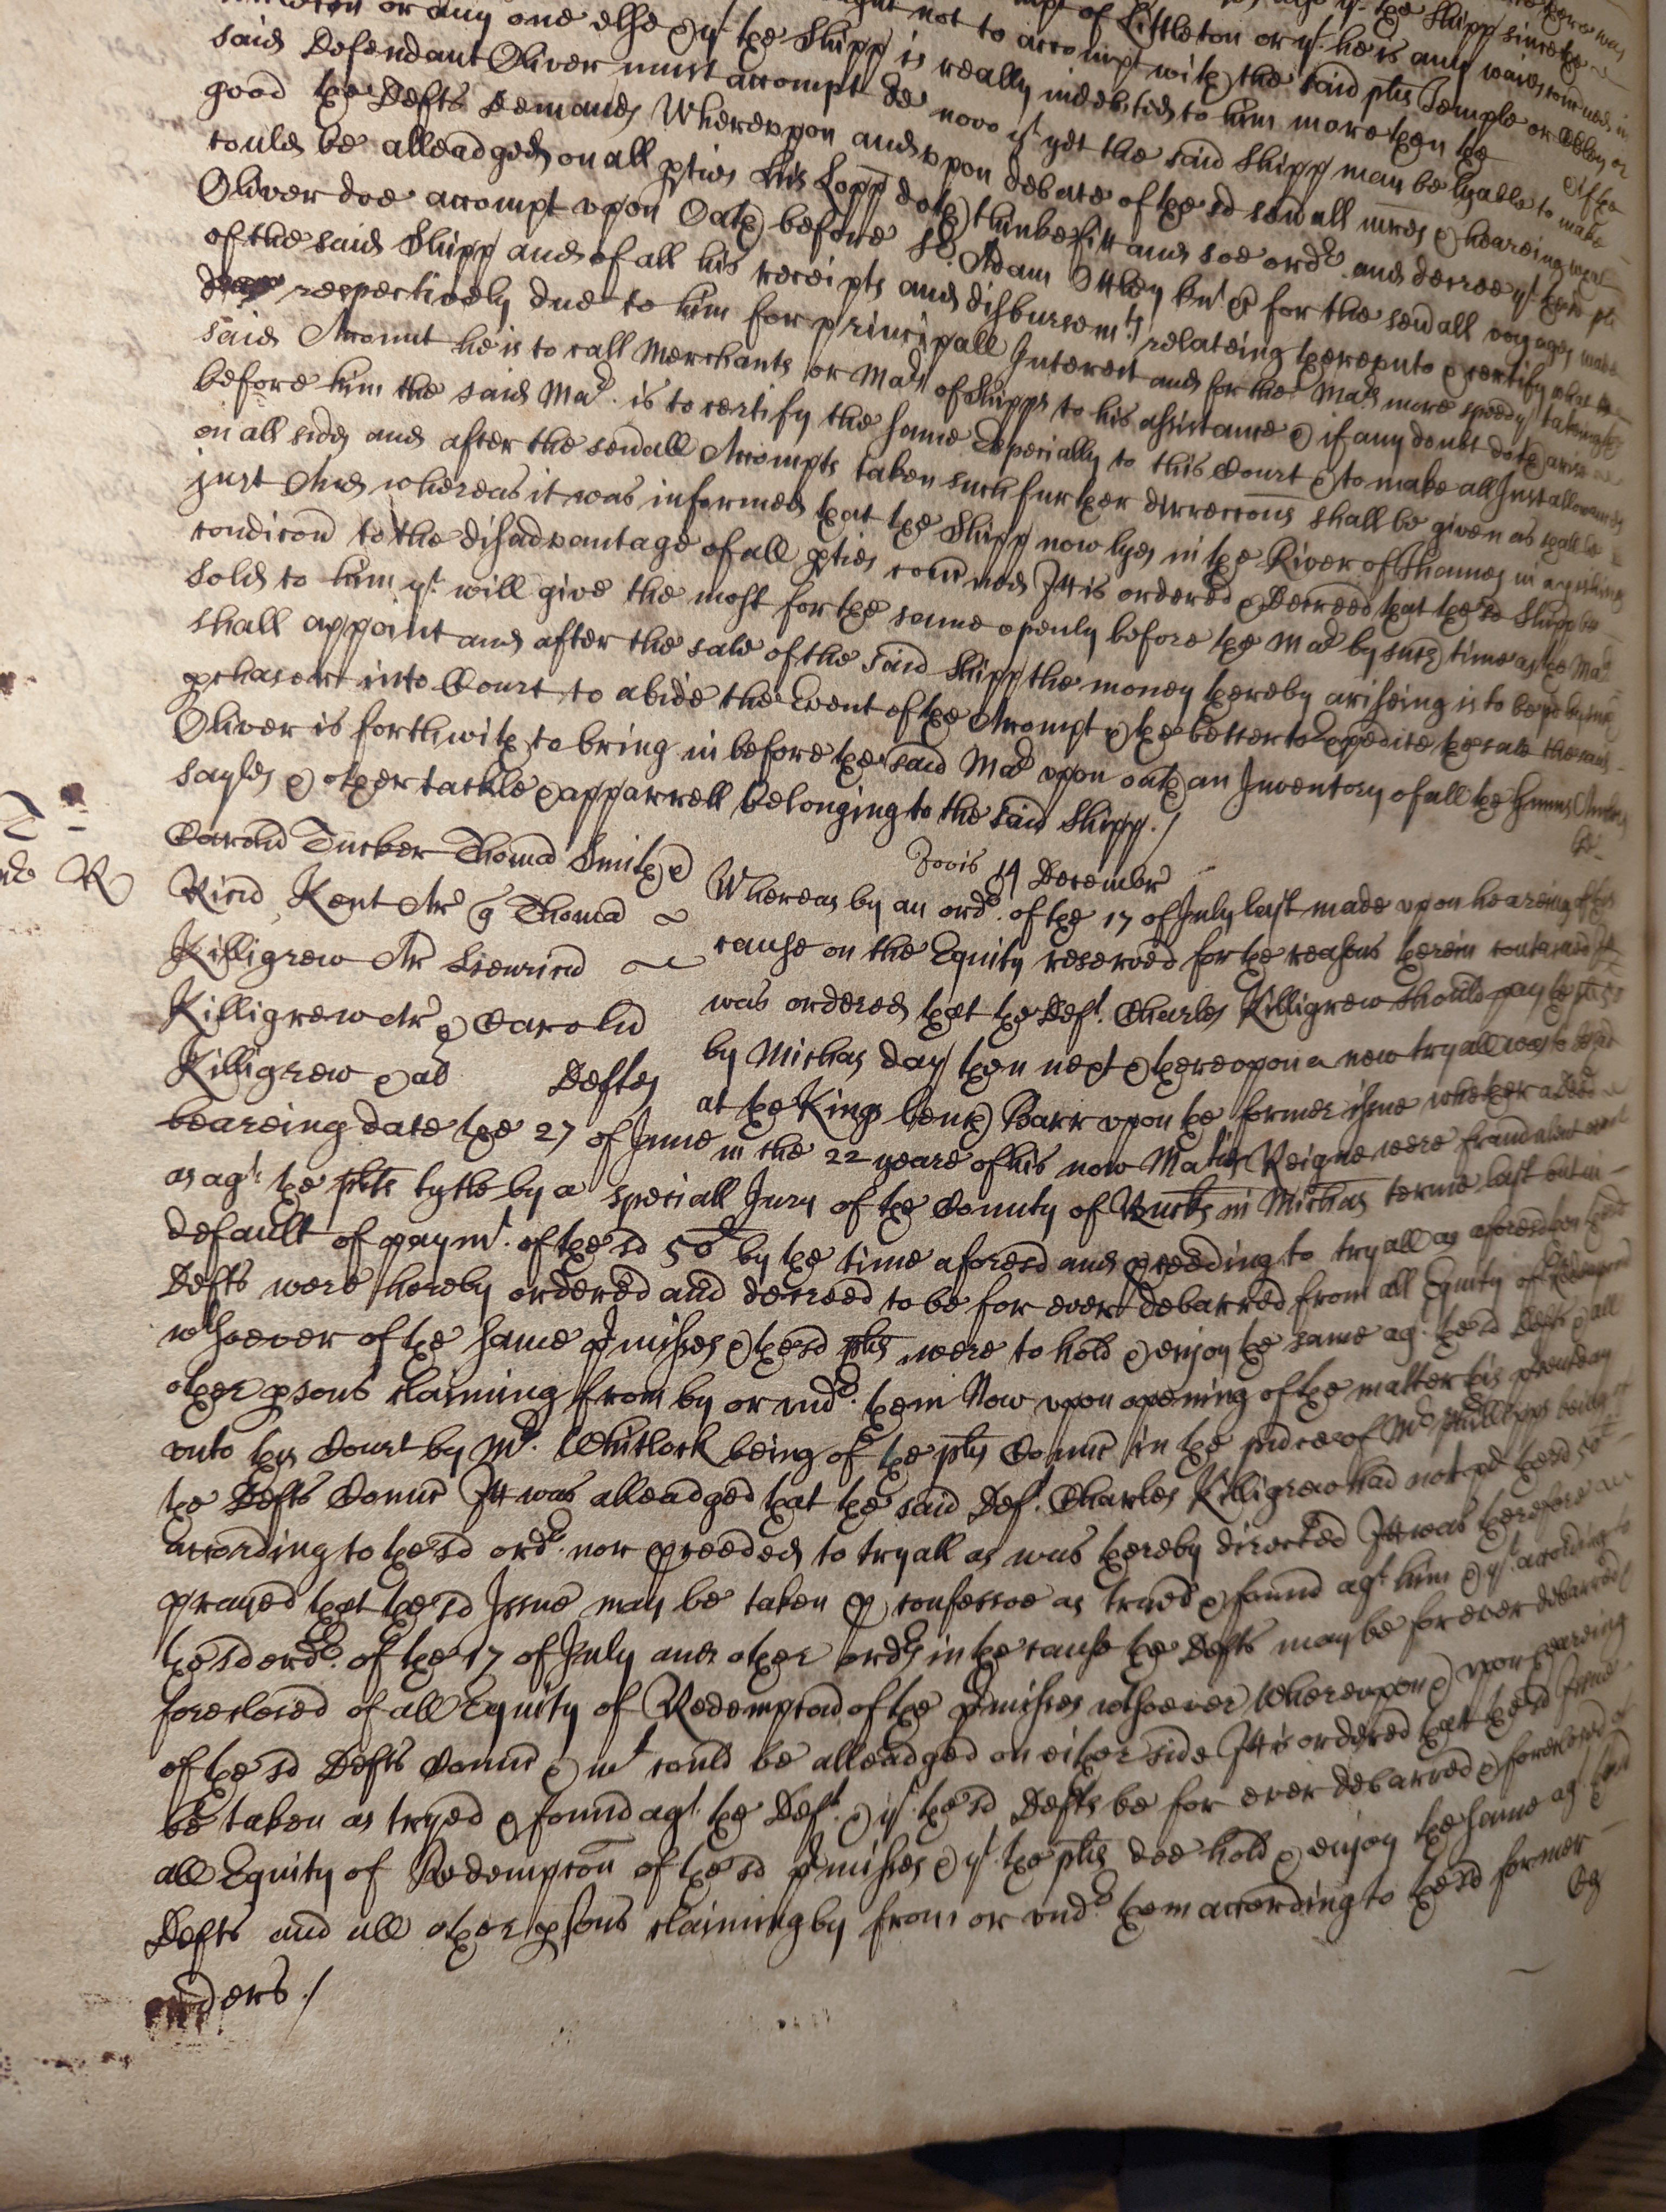 or any one else & yt the Shipp is really indebted to him more then the
said Defendant Oliver must accompt de novo yt yet the said Shipp may be lyable to make
good the Defts demands Whereupon and upon debate of the sd sevall mres & heareing wt
could be alleadged on all pties his Lopp doth thinke fitt and soe ordr and decree yt
Oliver doe accompt upon Oath before Sr Adam Ottley knt &c for the sevall voyages made
of the said Shipp and of all his receipts and disbursemts relateing thereunto & certify what is
respectively due to him for principall Interest and for the Mars more speedy takeing the
said Account he is to call Merchants or Mars of Shipps to his assistance & if any doubt doth arise
before him the said Mar is to certify the same especially to this Court & to make all Just allowances
on all sides and after the sevall Accompts taken such further direccons shall be given as shall be
just And whereas it was informed that the Shipp now lyes in the River of Thames in a perishing
condicon to the disadvantage of all pties concned Itt is ordered & decreed that the sd Shipp be
sold to him yt will give the most for the same openly before the Mar by such time as the Mar
shall appoint and after the sale of the said Shipp the money thereby ariseing is to be pd by such
pchaser into Court to abide the Event of the Accompt & the better to expedite the sale the said
Oliver is forthwith to bring in before the said Mar upon oath an Inventory of all the Gunns
sayles & other tackle & apparrell belonging to the said Shipp./
Jovis 14 Decembr
Carold Tucker Thoma Smith &
Ricd Kent Ar q Thoma
Killigrew Ar Henricu
Killigrew Ar & Carolu
Killigrew & al Deftes
Whereas by an ordr of the 17 of July last made upon heareing of this
cause on the Equity reserved for the reasons therein contained Itt
was ordered that the Deft Charles Killigrew should pay the plts 50
by Michas day then next & thereupon a new tryall was to be had
at the Kings bench Barr upon the former issue whether a deed
beareing date the 27 of June in the 22 yeare of his now Maties Reigne were fraudulent
as agt the plts tytle by a speciall Jury of the County of Bucks in Michas terme last but in
default of paymt of the sd 50l by the time aforesd and pceeding to tryall as aforesd then the sd
Defts were thereby ordered and decreed to be for ever debarred from all Equity of Redempcon
wtsoever of the same pmisses & the sd plts were to hold & enjoy the same agt the sd Defts & all
other psons claiming from by or undr them Now upon opening of the matter this psent day
unto this Court by Mr Whitlock being of the plts Councell in the psence of Mr Phillipps being of
the Defts Councell Itt was alleadged that the said Deft Charles Killigrew had not pd the sd 50l
according to the sd ordr nor pceeded to tryall as was thereby directed Itt was therefore
prayed that the sd Issue may be taken p confesso as tryed & found agt him & yt according to
the sd ordr of the 17 of July and other ordrs in the cause the Defts may be for ever debarred
foreclosed of all Equity of Redempcon of the pmisses wtsoever Whereupon & upon heareing
of the sd Defts Councell & wt could be alleadged on either side Itt is ordered that the sd Issue
be taken as tryed & found agt the Deft & yt the sd Defts be for ever debarred & foreclosed of
all Equity of Redempcon of the sd pmisses & yt the plts doe hold & enjoy the same agt the sd
Defts and all other psons claiming by from or undr them according to the sd former
orders ./